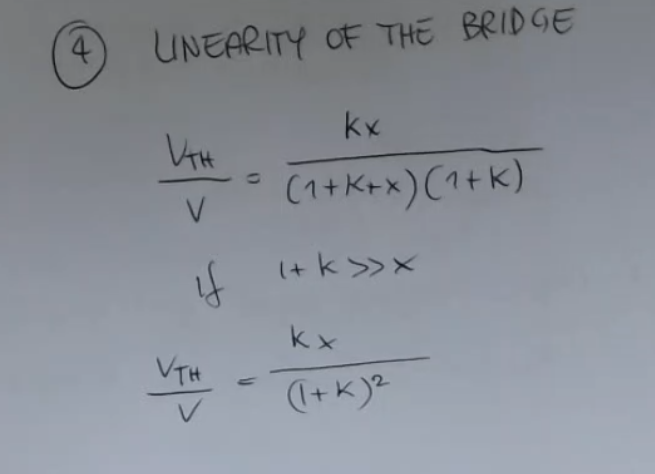 ④ LINEARITY OF THE BRIDGE
V_TH / V = kx / (1+K+x)(1+K)
if 1+k >> x
V_TH / V = kx / (1+K)²